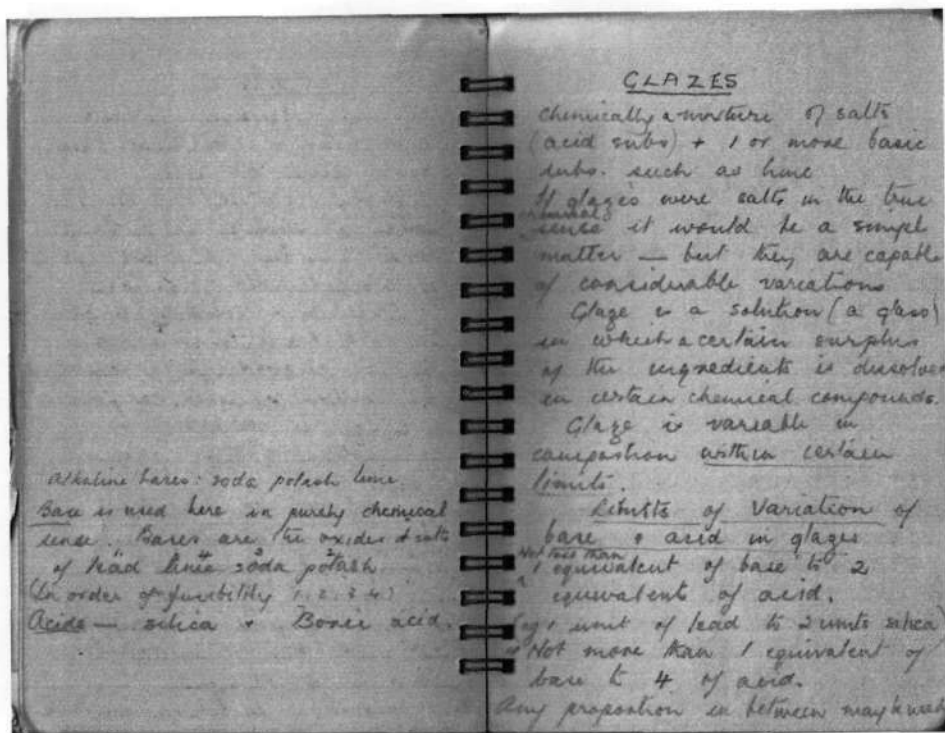 Alkaline bases: soda potash lime.
Base is used here in purely chemical
sense. Bases are the oxides & salts
of lead lime soda potash
(In order of fusibility 1. 2. 3. 4.)
Acids — silica & Boric acid.
GLAZES
Chemically a mixture of salts
(acid subs) + 1 or more basic
subs. such as lime
If glazes were salts in the true
chemical
sense it would be a simple
matter — but they are capable
of considerable variations
Glaze is a solution (a glass)
in which a certain surplus
of the ingredients is dissolved
in certain chemical compounds.
Glaze is variable in
composition within certain
limits.
Limits of Variation of
base & acid in glazes
Not less than
1 equivalent of base to 2
equivalents of acid.
(eg 1 unit of lead to 2 units silica)
Not more than 1 equivalent of
base to 4 of acid.
Any proportion in between may be used